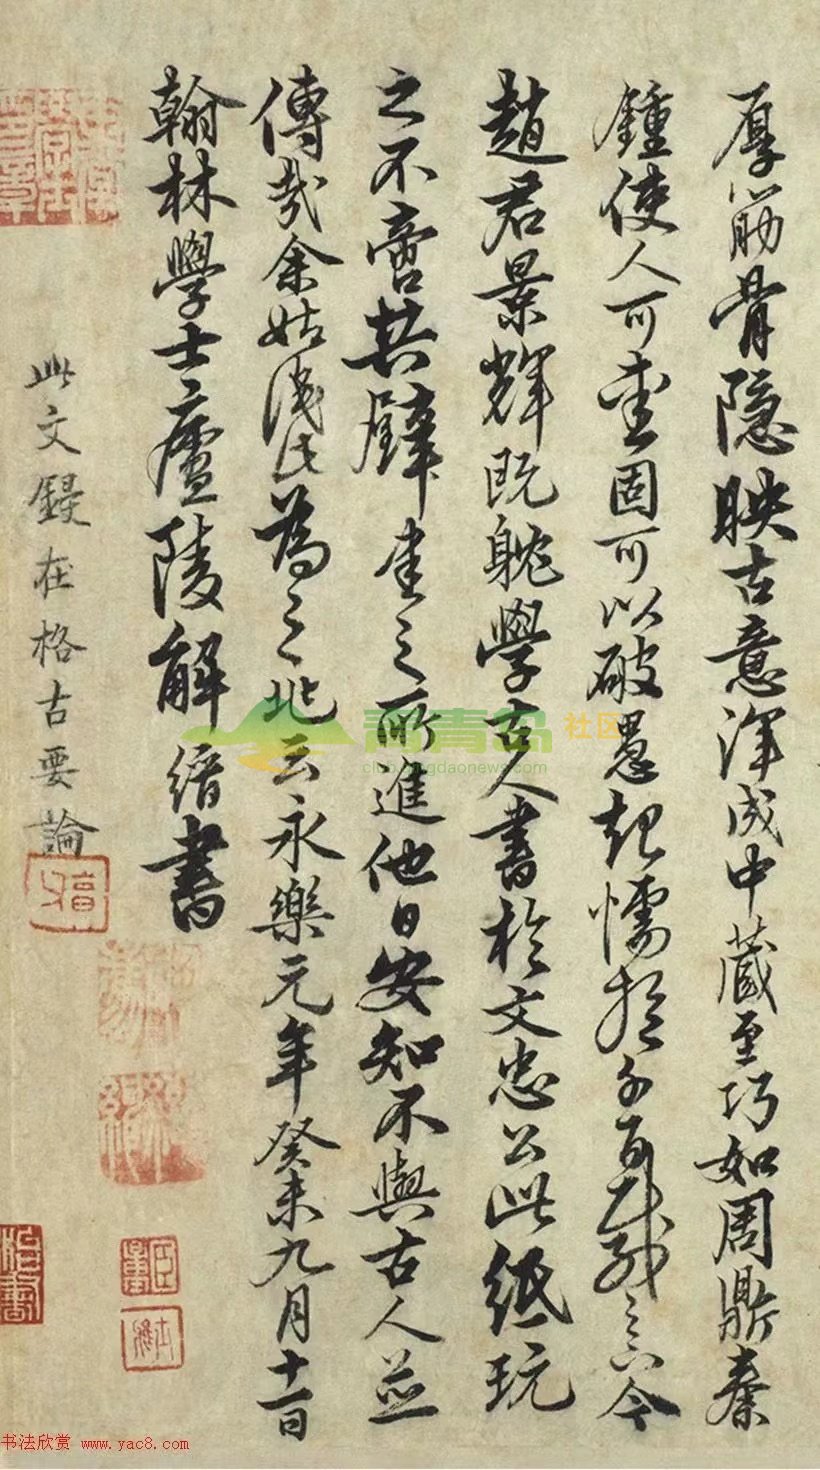 厚筋骨隐映古意渾成中藏至巧如周鼎秦
鍾使人可愛固可以破愚起懦於千百載之下今
趙君景輝既躭學古人書於文忠公此紙玩
之不啻拱璧書之所進他日安知不與古人並
傳哉余姑識此為之兆云永樂元年癸未九月十一日
翰林學士廬陵解縉書
此文録在格古要論
青青岛社区
club.qingdaonews.com
书法欣赏 www.yac8.com